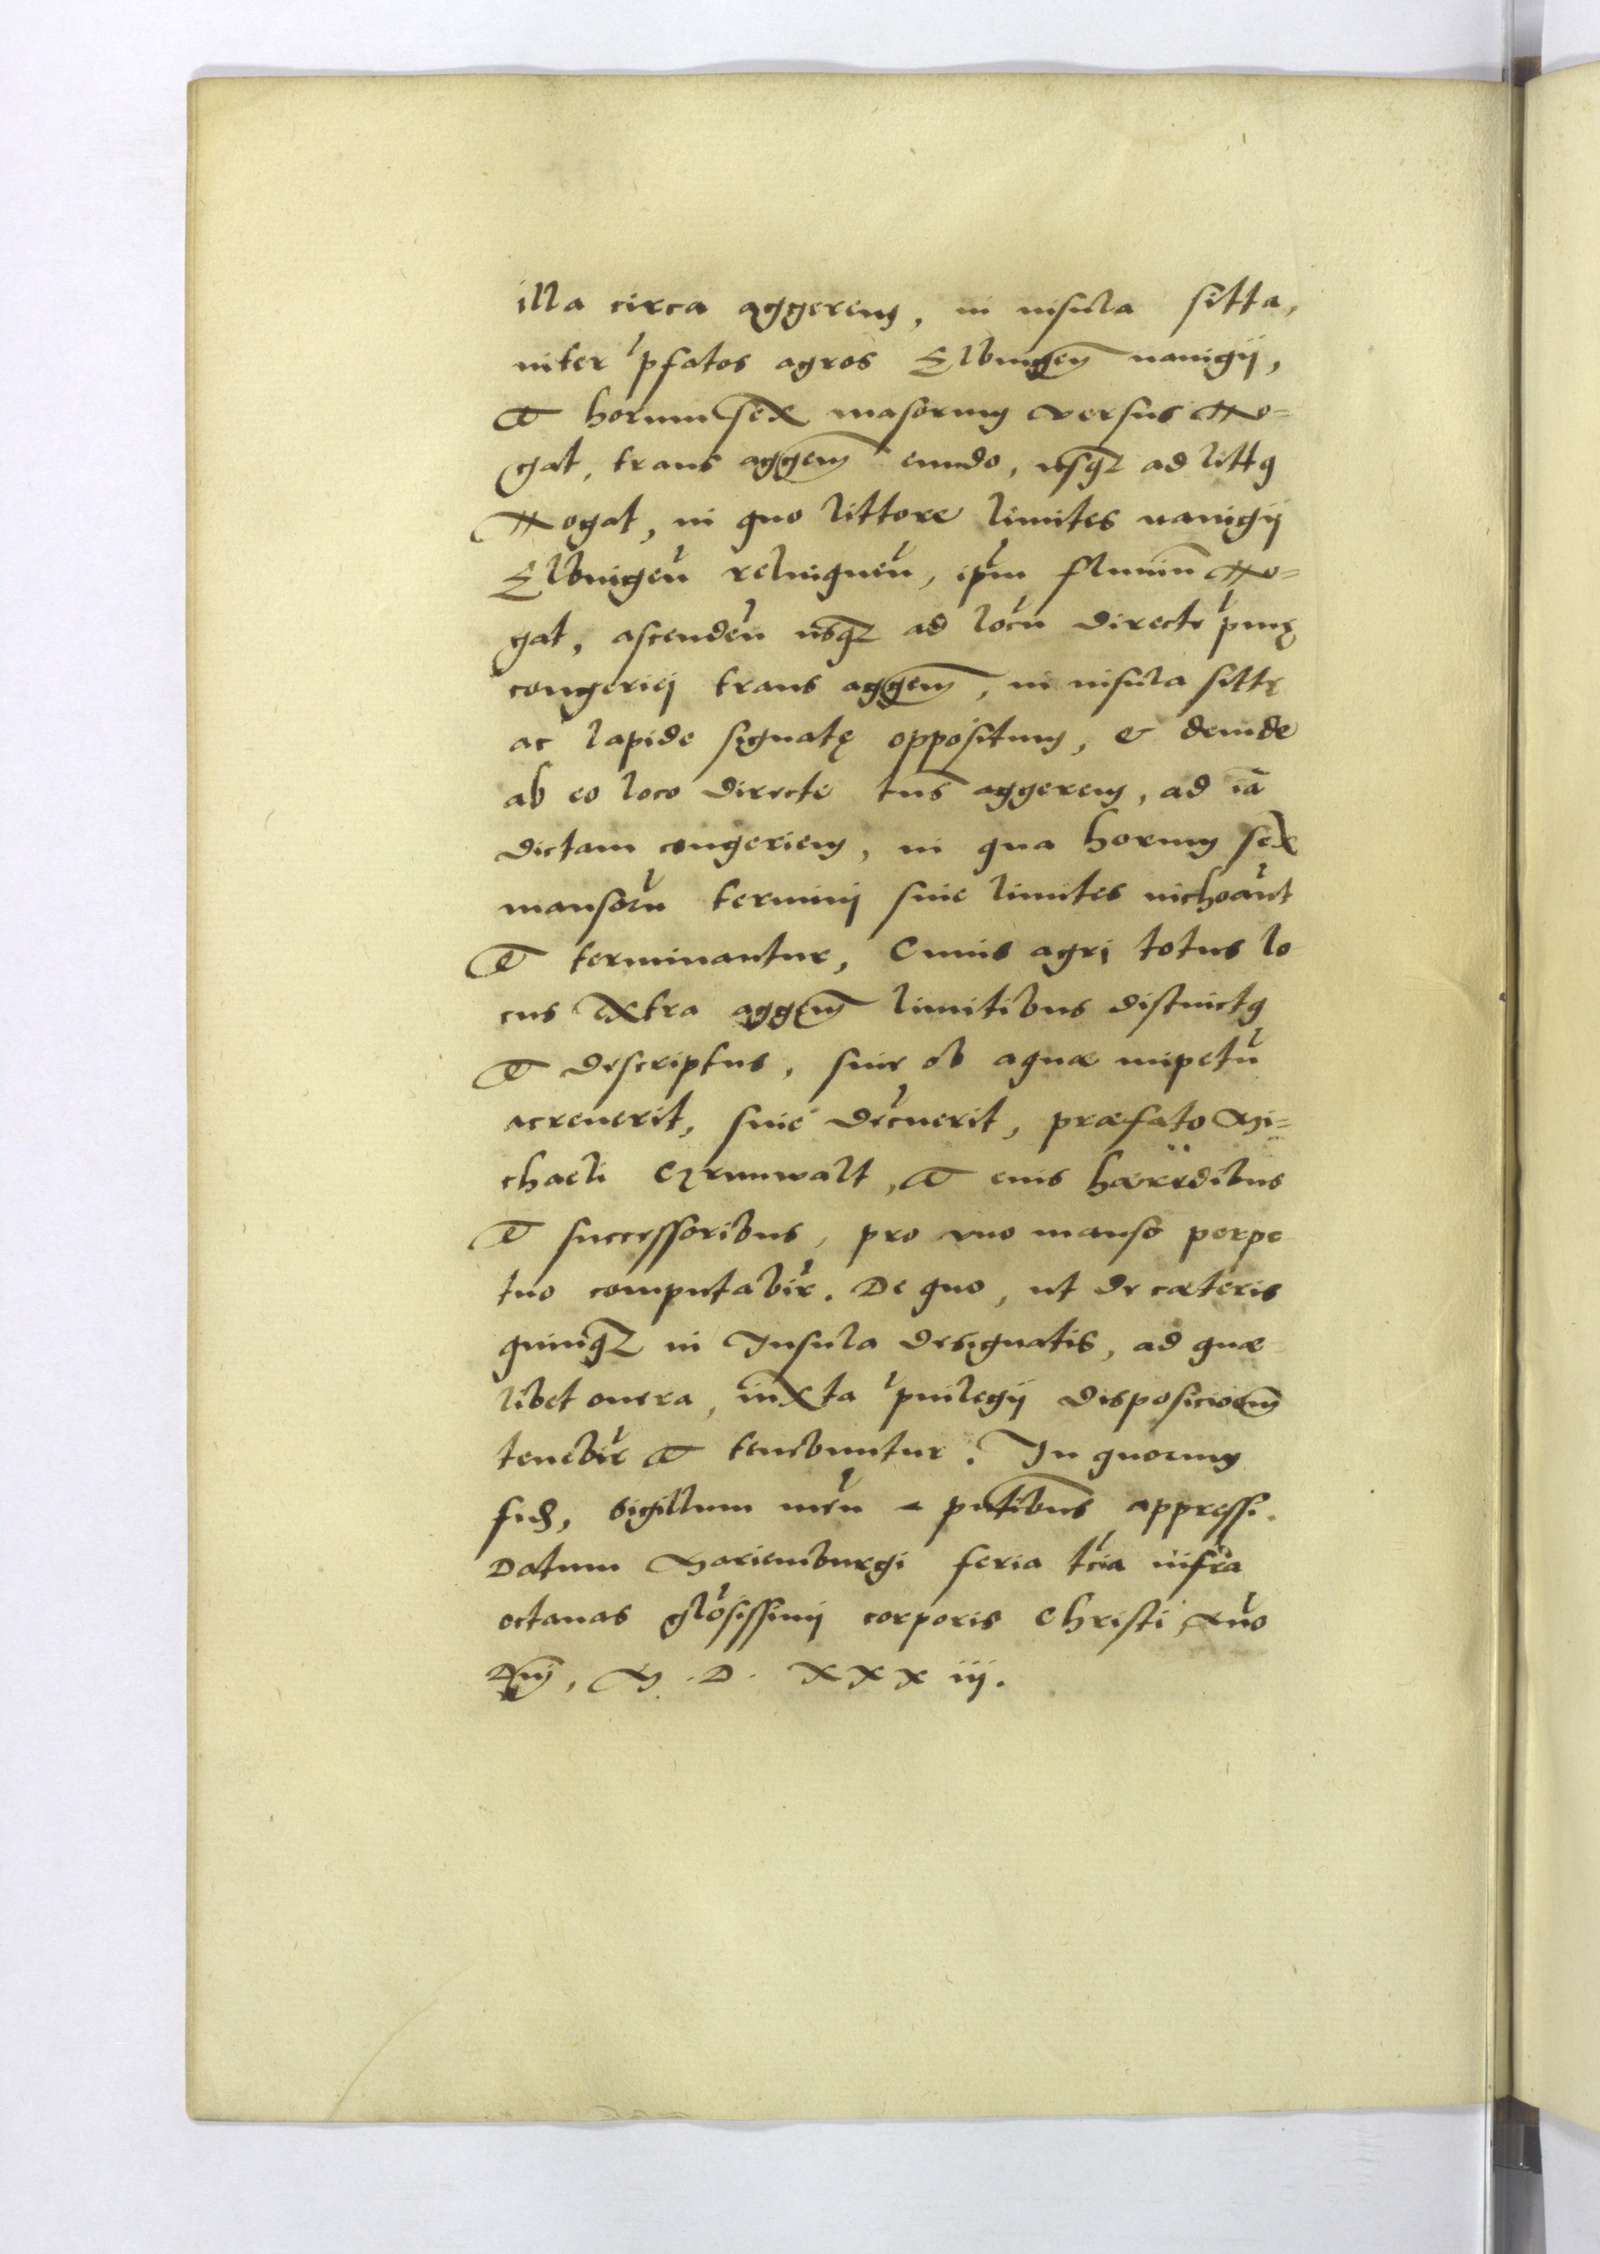 illa circa aggerem, in insula sitta,
inter p̃fatos agros Elbingeñ nauigij,
et horum sex masorum versus No=
gat, trans aggem̃ eundo, usq3 ad littꝯ
Nogat, in quo littore limites nauigij
Elbingeñ relinqueñ, ip̃m flumiñ No=
gat, ascendeñ usq3 ad locũ directe p̃mę
congeriej trans aggem̃, in insula sittę
ac lapide signatę oppositum, & deinde
ab eo loco directe tñs aggerem, ad iã
dictam congeriem, in qua horum sex
mansorũ terminj siue limites inchoãt
et terminantur, Cuius agri totus lo
cus extra aggem̃ limitibus distinctꝯ
et descriptus, siue ob aquæ impetũ
acreuerit, siue decr̃uerit, præfato Mi=
chaeli Grunwalt, et eius hæredibus
et successoribus, pro vno manso perpe
tuo computabit̃. De quo, ut de cæteris
quinq3 in Insula designatis, ad quæ
libet onera, iuxta p̃uilegij disposicioem̃
tenebit̃ et tenebuntur. In quorum
fidẽ, sigillum meũ pñtibus appressi.
Datum Mariemburgi feria tc̃ia infra
octauas glõsissimj corporis Christi, Año
Dñj, M. D. XXX iij.